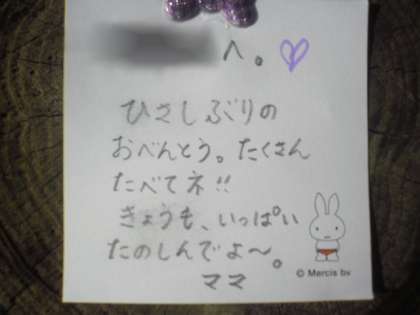 へ。
ひさしぶりの
おべんとう。たくさん
たべてネ!!
きょうも、いっぱい
たのしんでよ〜。
ママ
© Mercis bv